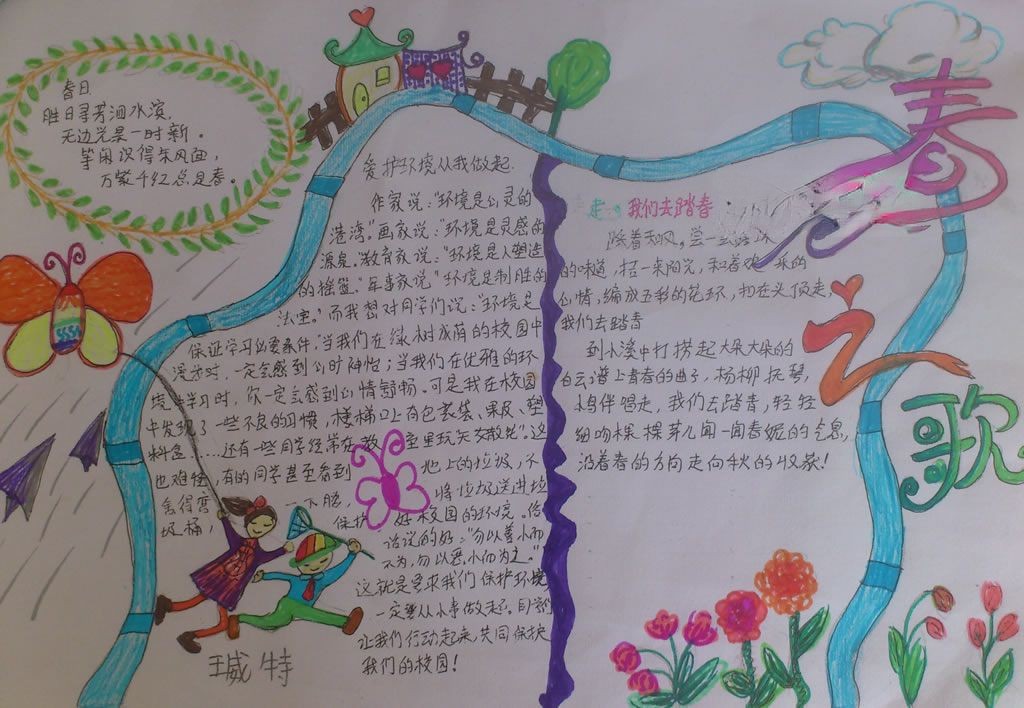 春日
胜日寻芳泗水滨,
无边光景一时新。
等闲识得东风面,
万紫千红总是春。
春之歌
爱护环境从我做起.
作家说:“环境是心灵的
港湾。”画家说:“环境是灵感的
源泉。”教育家说:“环境是人塑造
的摇篮。”军事家说“环境是制胜的
法宝。”而我想对同学们说:“环境是
保证学习必要条件。当我们在绿树成荫的校园中
漫步时,一定会感到心旷神怡;当我们在优雅的环
境中学习时,你一定会感到心情舒畅。可是我在校园
中发现了一些不良的习惯,楼梯口上有包装袋、果皮、塑
料盒……还有一些同学经常在教室里玩“天女散花”。这
也难怪,有的同学甚至看到地上的垃圾,不
舍得弯下腰,将垃圾送进垃
圾桶,保护好校园的环境。俗
话说的好:“勿以善小而
不为,勿以恶小而为之。”
这就是要求我们保护环境
一定要从小事做起。同学们
让我们行动起来,共同保护
我们的校园!
走,我们去踏春
踩着和风。尝一丝
的味道,招一束阳光,和着欢乐的
心情,编成五彩的花环,扣在头顶走,
我们去踏春
到小溪中打捞起大朵大朵的
白云谱上青春的曲子,杨柳抚琴,
鸟伴唱走,我们去踏青,轻轻
细吻棵棵芽儿闻一闻春姬的气息,
沿着春的方向走向秋的收获!
特